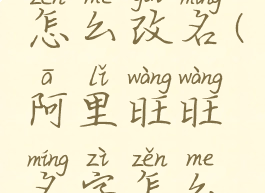 zěn me gǎi míng
怎么改名(
ā lǐ wàng wàng
阿里旺旺
míng zì zěn me
名字怎么